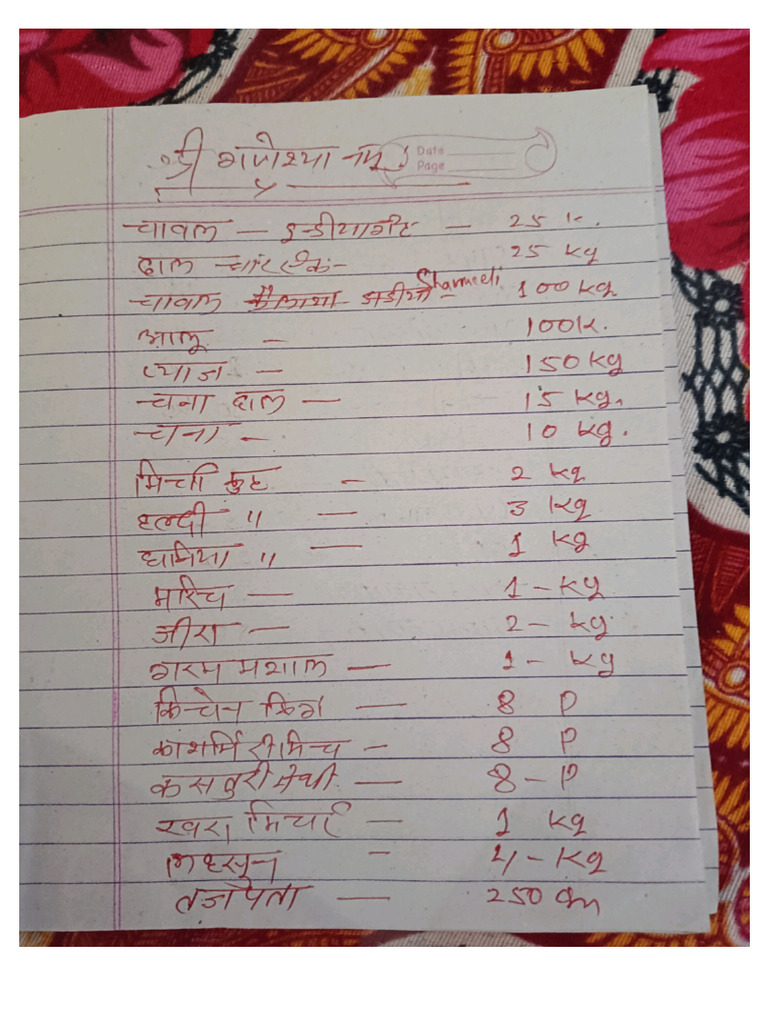 श्री गणेश्या नमः
Date
Page
चावल – इन्डीयागेट – 25 K.
दाल – 25 kg
चावल कैलाश Sharmeeli 100 kg
आलू – 100 K.
प्याज – 150 kg
चना दाल – 15 kg.
चना – 10 kg.
मिर्ची कुट – 2 kg
हल्दी " – 3 kg
धानिया " – 1 kg
मरिच – 1 – kg
जीरा – 2 – kg
गरम मशाल – 1 – kg
किचेन किंग – 8 P
काशमिरी मिच – 8 P
कसतुरी मेथी – 8 – P
खरा मिर्चाई – 1 kg
लहसुन – 4 – kg
तेजपता – 250 Gm